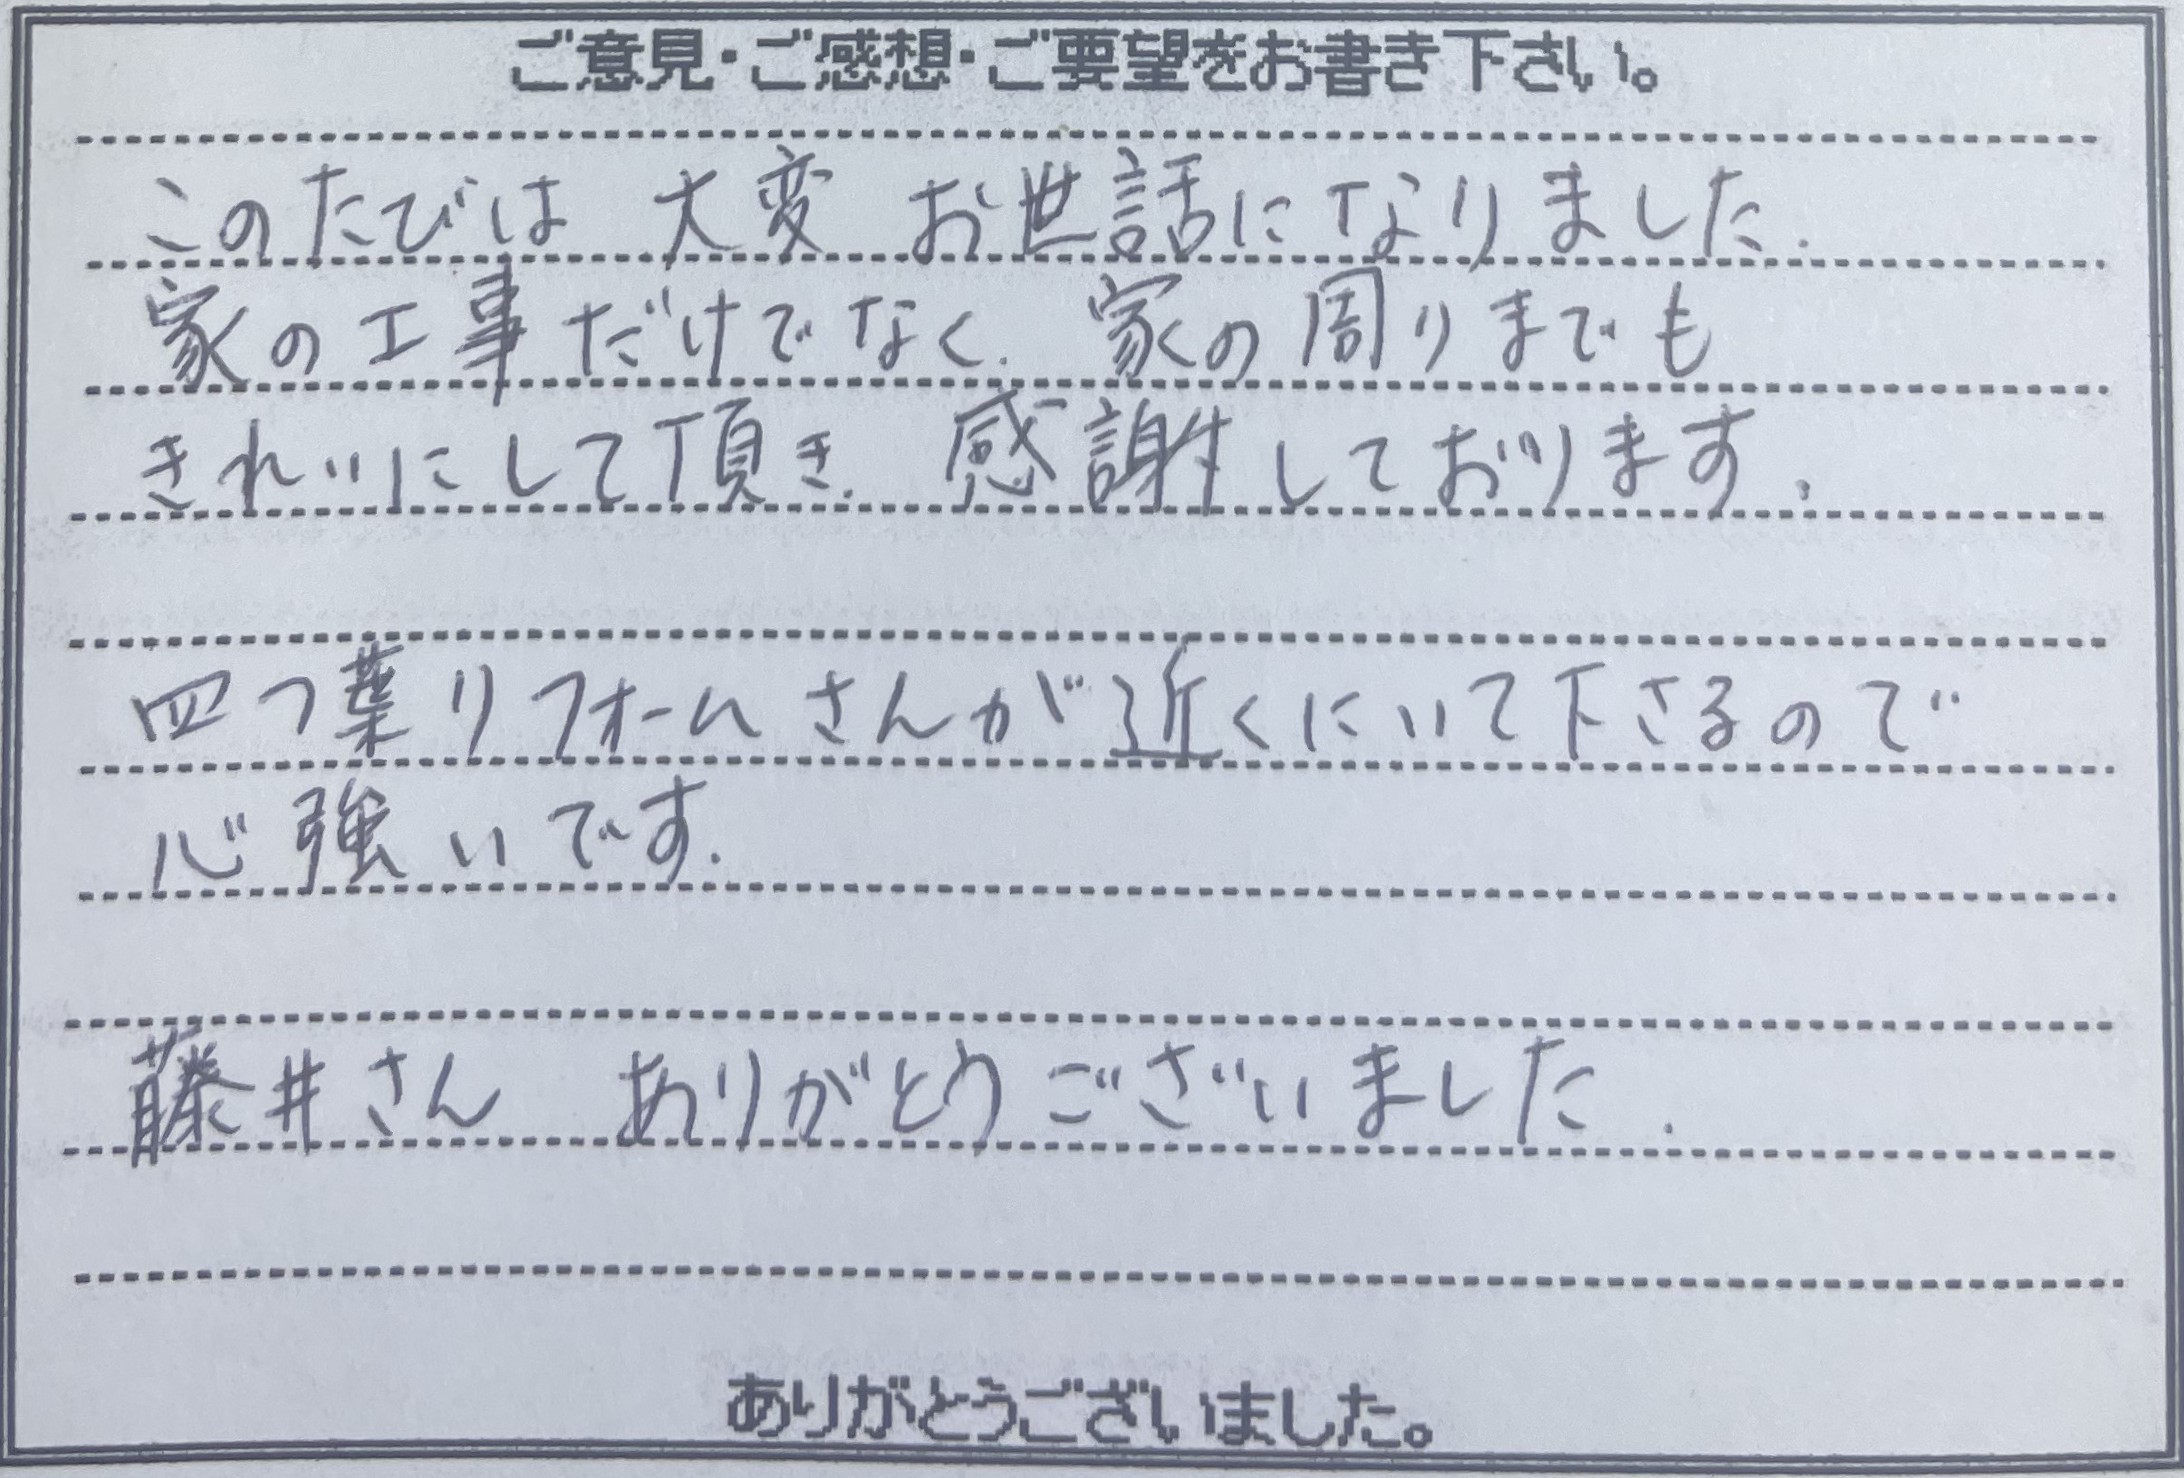 ご意見・ご感想・ご要望をお書き下さい。
このたびは 大変 お世話になりました.
家の工事だけでなく. 家の周りまでも
きれいにして頂き. 感謝しております.
四つ葉リフォームさんが近くにいて下さるので
心強いです.
藤井さん ありがとうございました.
ありがとうございました。